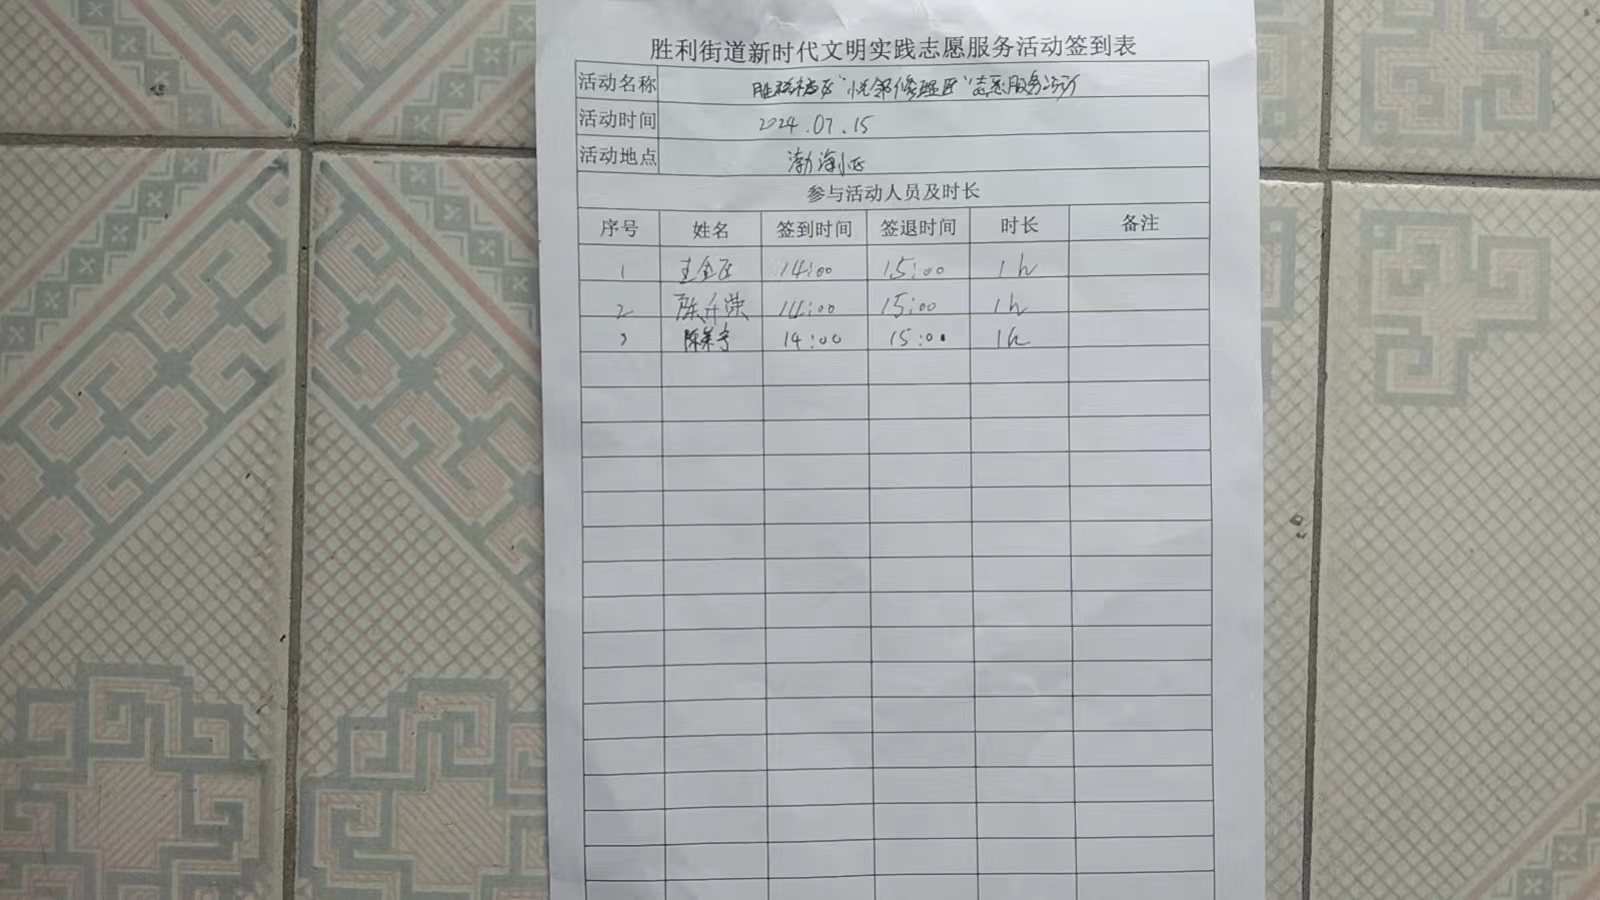 胜利街道新时代文明实践志愿服务活动签到表
活动名称 社区"悦邻修理匠"志愿服务活动
活动时间 2024.07.15
活动地点 渤海小区
参与活动人员及时长
序号 姓名 签到时间 签退时间 时长 备注
1 14:00 15:00 1h
2 陈 荣 14:00 15:00 1h
3 陈 14:00 15:00 1h